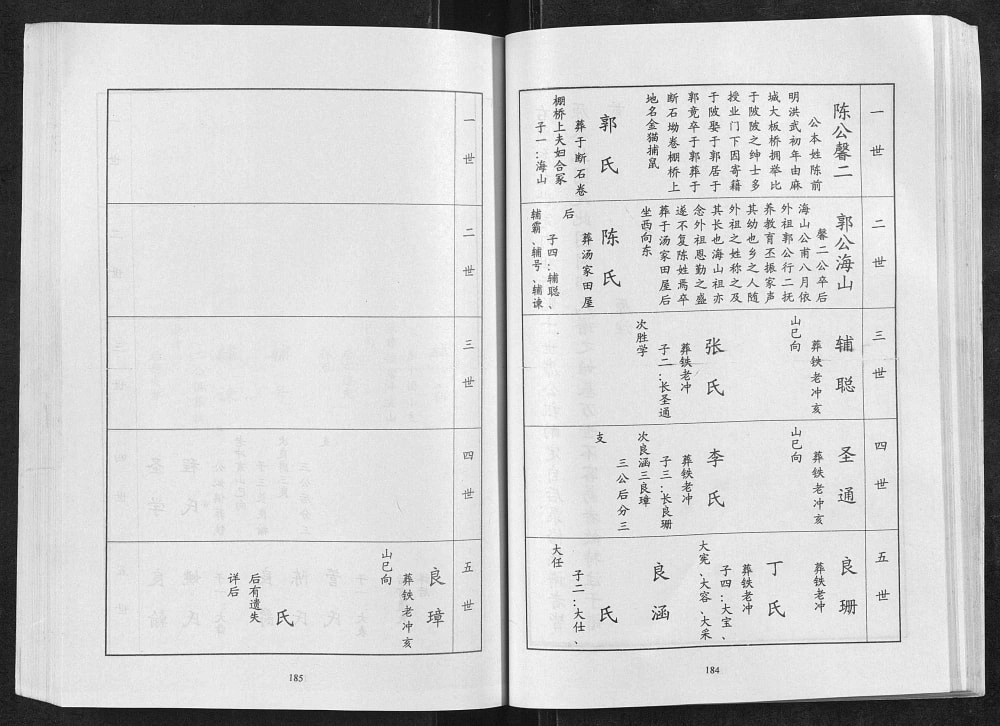 一世
陈公馨二
公本姓陈前
明洪武初年由麻
城大板桥拥举比
于陂陂之绅士多
授业门下因寄籍
于陂娶于郭居于
郭竟卒于郭葬于
断石坳卷棚桥上
地名金猫捕鼠
郭氏
葬于断石卷
棚桥上夫妇合冢
子一:海山
二世
郭公海山
馨二公卒后
海山公甫八月依
外祖郭公行二抚
养教育丕振家声
其幼也乡之人随
外祖之姓称之及
其长也海山祖亦
念外祖恩勤之盛
遂不复陈姓焉卒
葬于汤家田屋后
坐西向东
陈氏
葬汤家田屋
后
子四:辅聪、
辅霸、辅号、辅谏
三世
辅聪
葬铁老冲亥
山巳向
张氏
葬铁老冲
子二:长圣通
次胜学
四世
圣通
葬铁老冲亥
山巳向
李氏
葬铁老冲
子三:长良珊
次良涵三良璋
三公后分三
支
五世
良珊
葬铁老冲
丁氏
葬铁老冲
子四:大宝、
大宪、大容、大采
良涵
氏
子二:大仕、
大任
184
一世
二世
三世
四世
五世
良璋
葬铁老冲亥
山巳向
氏
后有遗失
详后
185